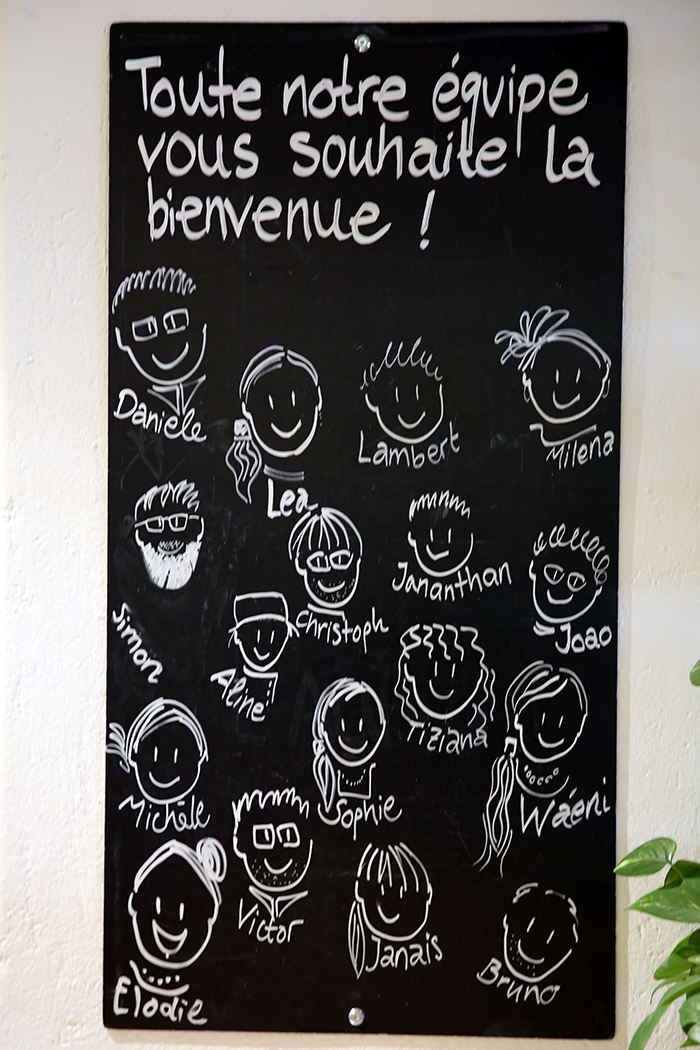 Toute notre équipe
vous souhaite la
bienvenue !
Daniele
Lea
Lambert
Milena
Simon
Christoph
Jananthan
Joao
Aline
Tiziana
Michèle
Sophie
Waéni
Victor
Elodie
Janais
Bruno